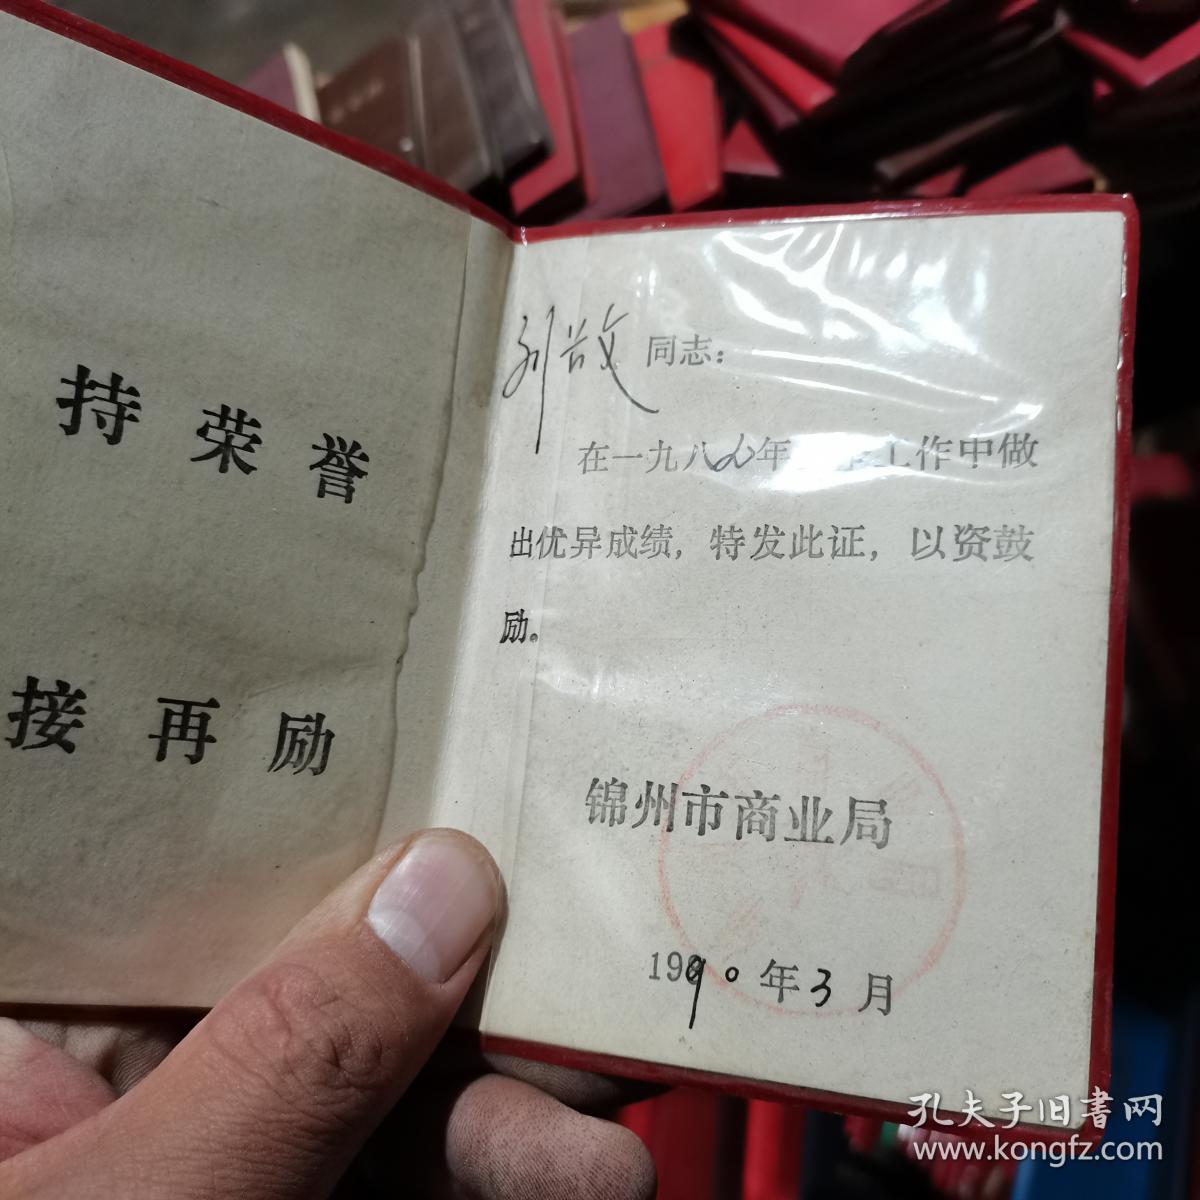 持荣誉
接再励
同志：
在一九八 年 工作中做
出优异成绩，特发此证，以资鼓
励。
锦州市商业局
1990年3月
孔夫子旧书网
www.kongfz.com